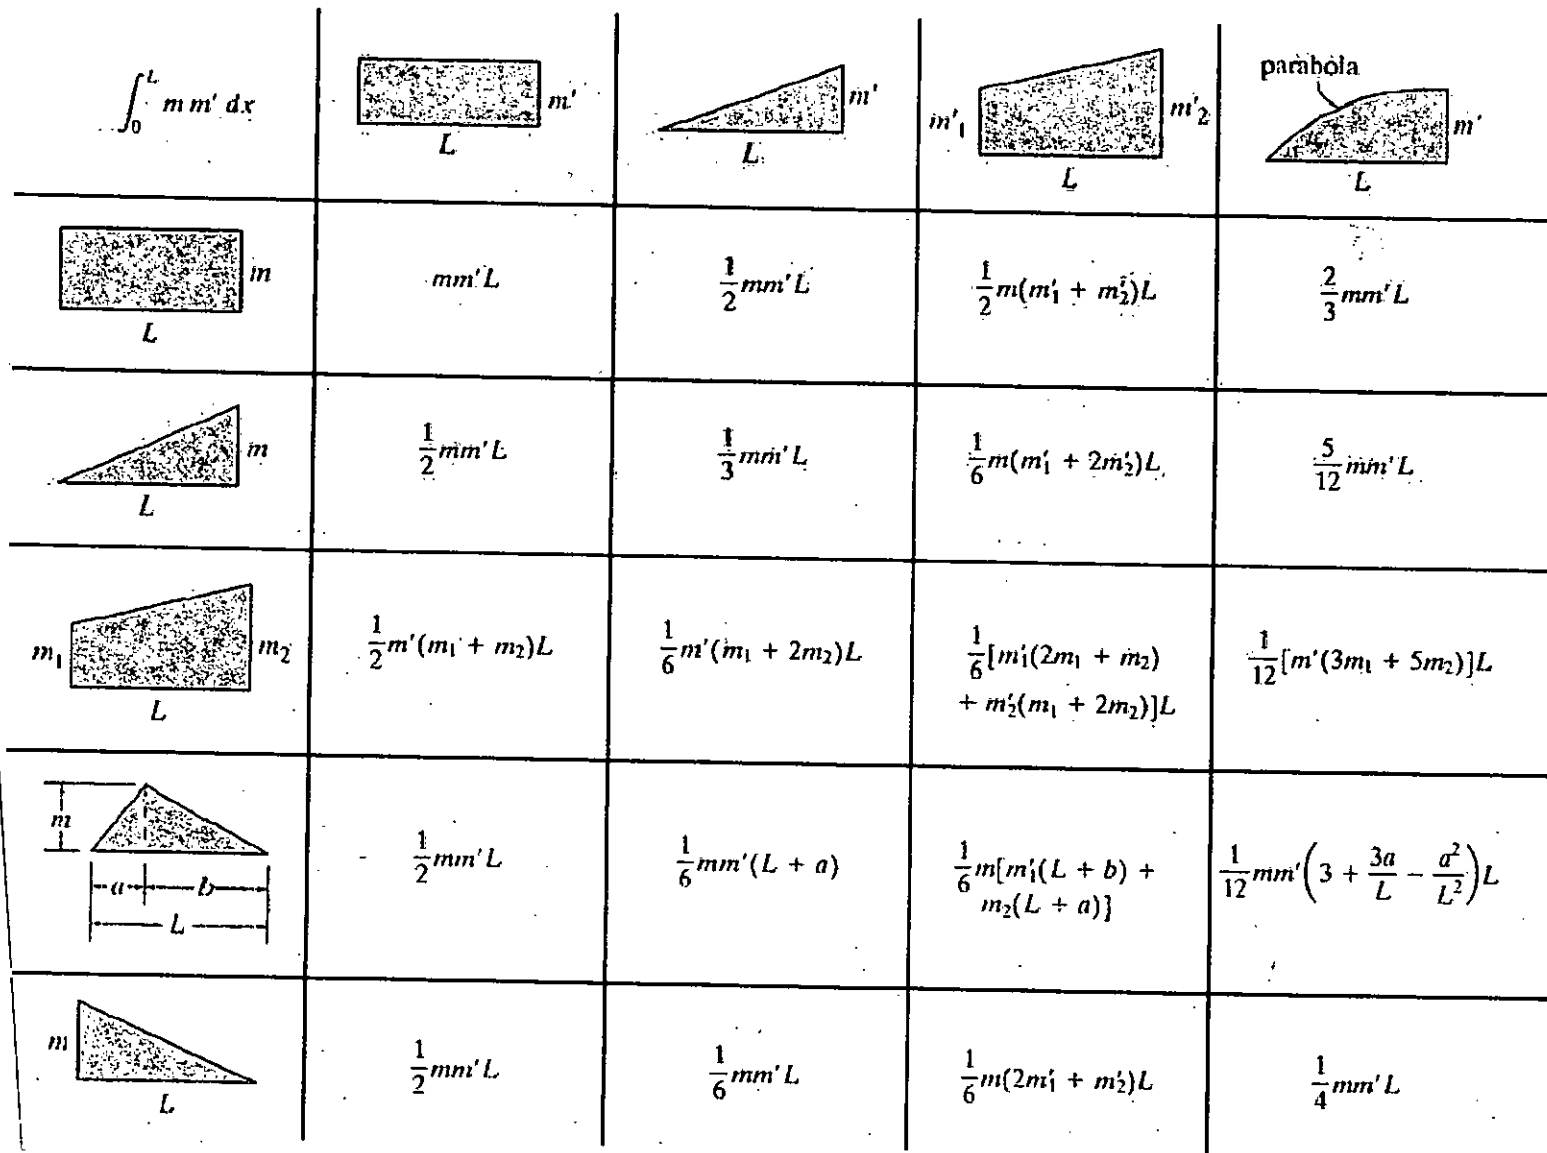 ∫₀ᴸ m m′ dx
m′
L
m′
L
m′₁
m′₂
L
parabola
m′
L
m
L
mm′L
1/2 mm′L
1/2 m(m′₁ + m′₂)L
2/3 mm′L
m
L
1/2 mm′L
1/3 mm′L
1/6 m(m′₁ + 2m′₂)L
5/12 mm′L
m₁
m₂
L
1/2 m′(m₁ + m₂)L
1/6 m′(m₁ + 2m₂)L
1/6 [m′₁(2m₁ + m₂)
+ m′₂(m₁ + 2m₂)]L
1/12 [m′(3m₁ + 5m₂)]L
m
a
b
L
1/2 mm′L
1/6 mm′(L + a)
1/6 m[m′₁(L + b) +
m₂(L + a)]
1/12 mm′(3 + 3a/L − a²/L²)L
m
L
1/2 mm′L
1/6 mm′L
1/6 m(2m′₁ + m′₂)L
1/4 mm′L